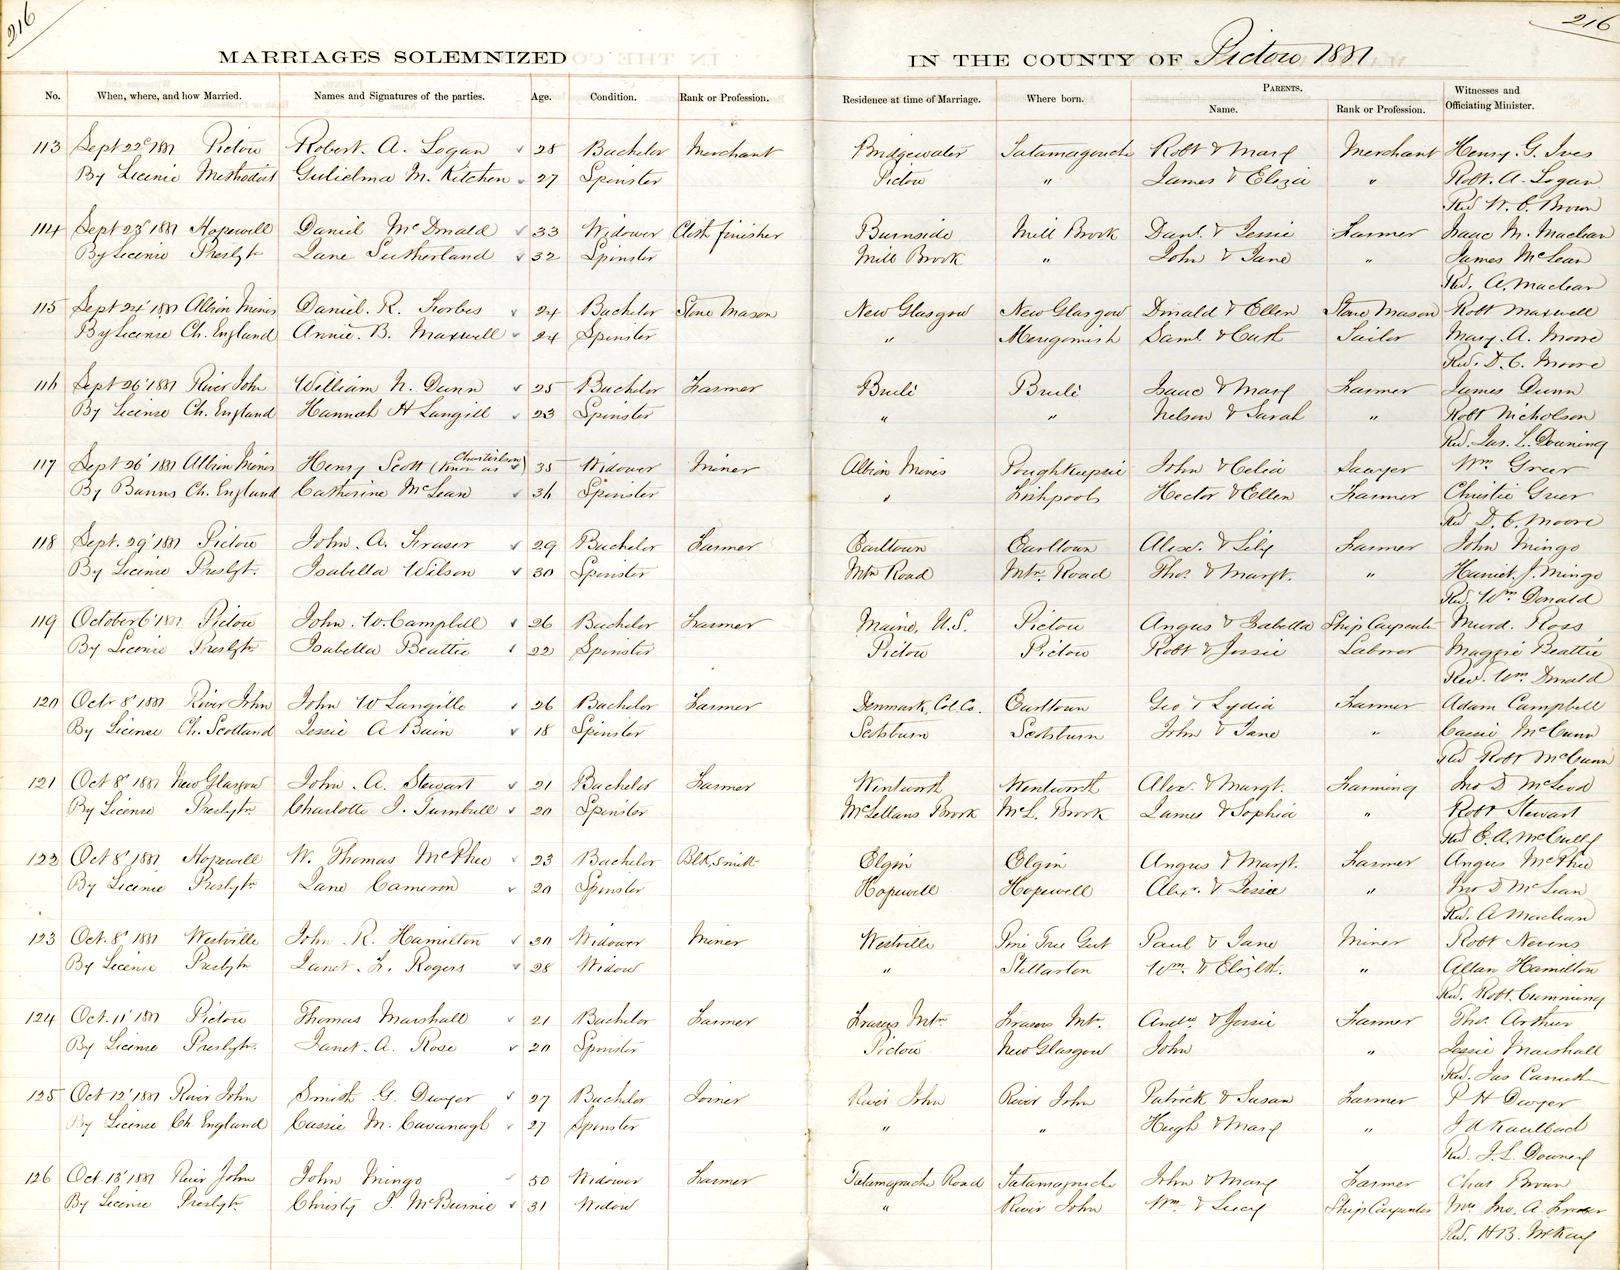 216
216
MARRIAGES SOLEMNIZED IN THE COUNTY OF Pictou 1881
No. When, where, and how Married. Names and Signatures of the parties. Age. Condition. Rank or Profession. Residence at time of Marriage. Where born. PARENTS. Name. Rank or Profession. Witnesses and Officiating Minister.
113 Sept 22d 1881 Pictou Robert. A. Logan 28 Bachelor Merchant Bridgewater Tatamagouche Robt & Mary Merchant Henry. G. Ives
By License Methodist Gulielma M. Kitchen 27 Spinster Pictou " James & Eliza " Robt. A. Logan
Rev W. C. Brown
114 Sept 23d 1881 Hopewell Daniel McDonald 33 Widower Cloth finisher Burnside Mill Brook Danl. & Jessie Farmer Isaac M. Maclean
By License Presbyt. Jane Sutherland 32 Spinster Mill Brook " John & Jane " James McLean
Rev. A. Maclean
115 Sept 24' 1881 Albion Mines Daniel. R. Forbes 24 Bachelor Stone Mason New Glasgow New Glasgow Donald & Ellen Stone Mason Robt Maxwell
By License Ch. England Annie. B. Maxwell 24 Spinster " Merigomish Saml. & Cath Tailor Mary. A. Moore
Rev. D. C. Moore
116 Sept 26' 1881 River John William N. Dunn 25 Bachelor Farmer Brulé Brulé Isaac & Mary Farmer James Dunn
By License Ch. England Hannah H Langill 23 Spinster " " Nelson & Sarah " Robt Nicholson
Rev. Jas. L. Downing
117 Sept 26' 1881 Albion Mines Henry Scott (Known as ) 35 Widower Miner Albion Mines Poughkeepsie John & Celia Sawyer Wm. Greer
By Banns Ch. England Catherine McLean 36 Spinster " Fishpools Hector & Ellen Farmer Christie Greer
Rev D. C. Moore
118 Sept. 29' 1881 Pictou John. A. Fraser 29 Bachelor Farmer Earltown Earltown Alex. & Lily Farmer John Mingo
By License Presbyt. Isabella Wilson 30 Spinster Mtn Road Mtn. Road Thos & Margt. " Harriet. J. Mingo
Rev. Wm. Donald
119 October 6' 1881 Pictou John. W. Campbell 26 Bachelor Farmer Maine, U.S. Pictou Angus & Isabella Ship Carpenter Murd. Ross
By License Presbytn Isabella Beattie 22 Spinster Pictou Pictou Robt & Jessie Laborer Maggie Beattie
Rev. Wm. Donald
120 Octr 8' 1881 River John John W Langille 26 Bachelor Farmer Denmark, Col. Co. Earltown Geo & Lydia Farmer Adam Campbell
By License Ch. Scotland Jessie A Bain 18 Spinster Scotsburn Scotsburn John & Jane " Cassie McCunn
Rev Robt McCunn
121 Oct 8' 1881 New Glasgow John. A. Stewart 21 Bachelor Farmer Wentworth Wentworth Alex. & Margt. Farming Jno D McLeod
By License Presbytn. Charlotte J. Turnbull 20 Spinster McLellans Brook McL. Brook James & Sophia " Robt Stewart
Rev E. A. McCully
122 Oct 8' 1881 Hopewell W. Thomas McPhee 23 Bachelor Blk. Smith Elgin Elgin Angus & Margt. Farmer Angus McPhee
By License Presbytn Jane Cameron 20 Spinster Hopewell Hopewell Alex. & Jessie " Jno D McLean
Rev. A Maclean
123 Oct. 8' 1881 Westville John. R. Hamilton 30 Widower Miner Westville Pine Tree Gut Paul & Jane Miner Robt Nevens
By License Presbytn Janet. F. Rogers 28 Widow " Stellarton Wm. & Elizbth. " Allan Hamilton
Rev. Robt. Cumming
124 Oct. 11' 1881 Pictou Thomas Marshall 21 Bachelor Farmer Frasers Mtn Frasers Mt. Andw & Jessie Farmer Thos. Arthur
By License Presbytn. Janet. A. Rose 20 Spinster Pictou New Glasgow John " Jessie Marshall
Rev. Jas Carruth
125 Oct 12' 1881 River John Smith G. Dwyer 27 Bachelor Joiner River John River John Patrick & Susan Farmer P H Dwyer
By License Ch England Cassie M. Cavanagh 27 Spinster " " Hugh & Mary " J A Kaulbach
Rev. J. L. Downey
126 Oct. 13' 1881 River John John Mingo 50 Widower Farmer Tatamagouche Road Tatamagouche John & Mary Farmer Chas Brown
By License Presbytn Christy J. McBurnie 31 Widow " River John Wm. & Lucy Ship Carpenter Mrs Jno. A. Fraser
Rev. H B. McKay